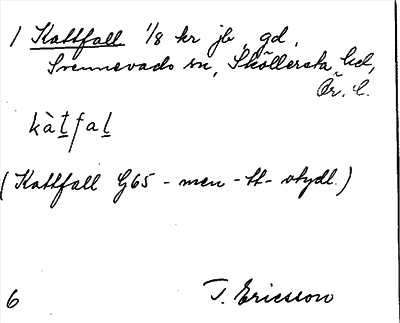 1 Kattfall 1/8 kr jb, gd,
Svennevads sn, Sköllersta hd,
Ör. l.
kàt̲fal̲
(Kattfall G65 - men -tt- otydl.)
6 T. Ericsson